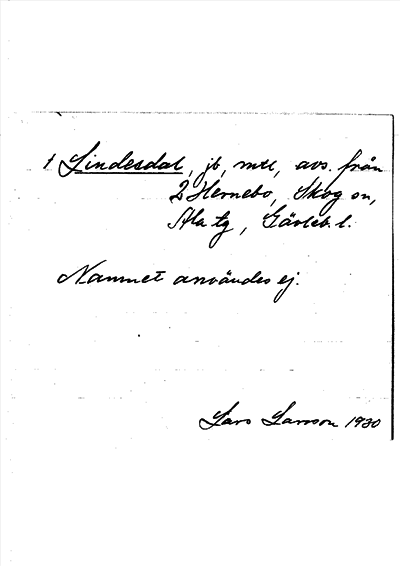 † Lindesdal, jb, mtl, avs. från
2 Hernebo, Skog sn,
Ala tg, Gävleb. l.
Namnet användes ej.
Lars Larsson 1930